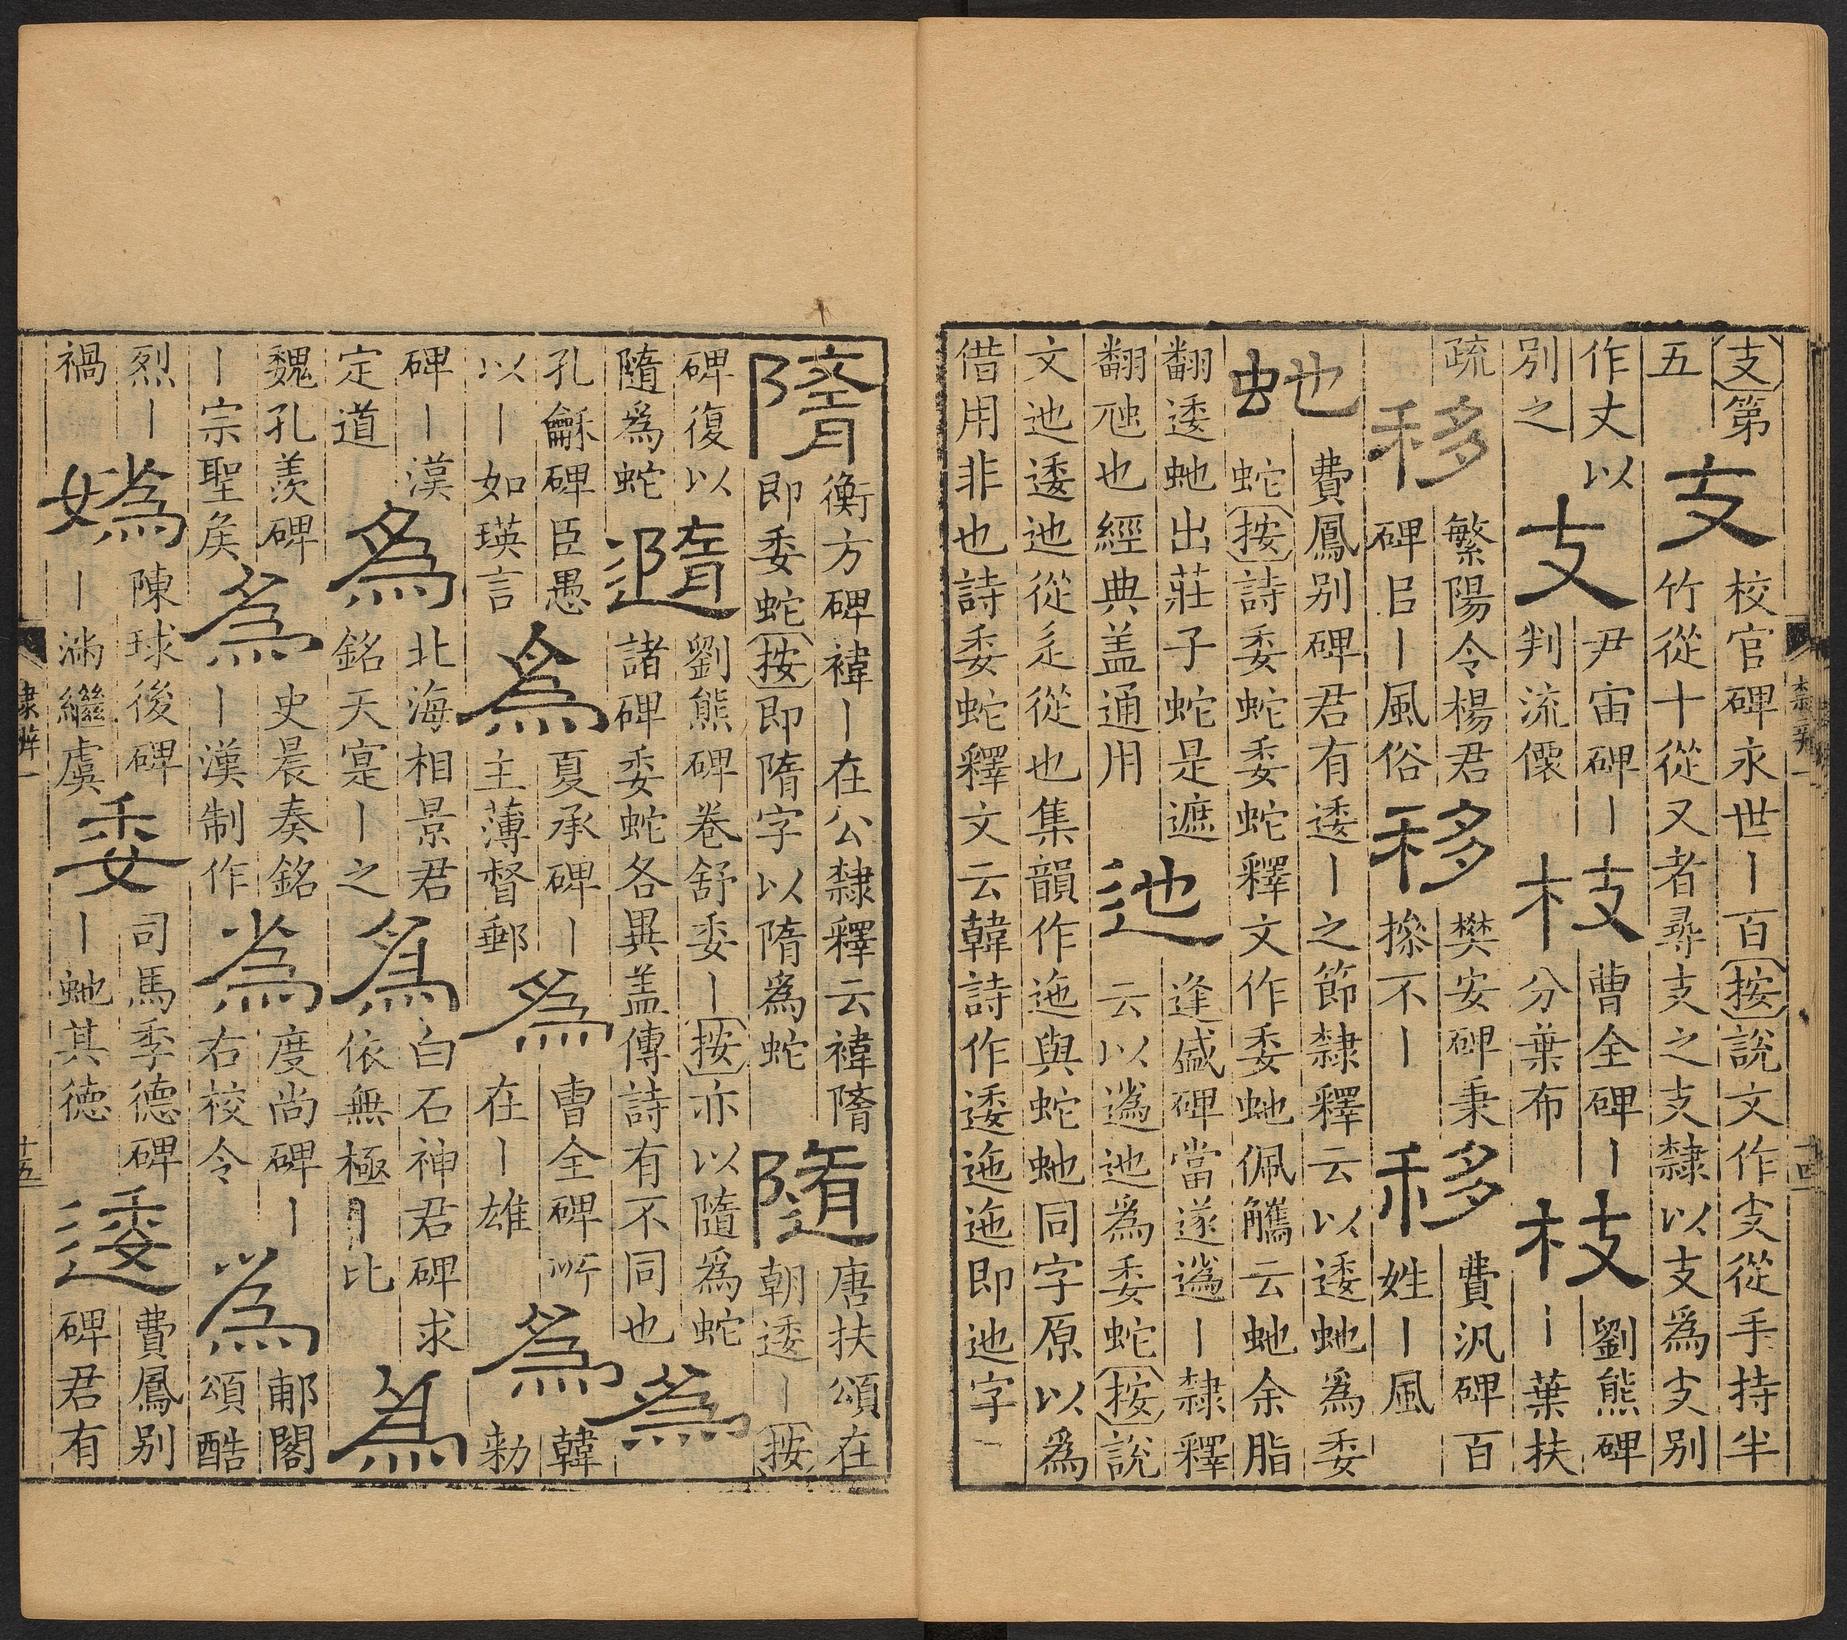 支第
五
支
校官碑永世丨百按說文作支從手持半
竹從十從又者㝷支之支隸以支為支别
作丈以
别之
支
尹宙碑丨
判流儇
枝
曹全碑丨
分葉布
枝
劉熊碑
丨葉扶
疏
移
繁陽令楊君
碑㠯丨風俗
移
樊安碑秉
摻不丨
移
費汎碑百
姓丨風
虵
費鳳别碑君有逶丨之節隸釋云以逶虵爲委
蛇按詩委蛇委蛇釋文作委虵佩觿云虵余脂
翻逶虵出莊子蛇是遮
翻也經典盖通用
迆
逢盛碑當遂丨隸釋
云以迆爲委蛇按說
文迆逶迆從辵從也集韻作迤與蛇虵同字原以為
借用非也詩委蛇釋文云韓詩作逶迤迤即迆字
十四
隋
衡方碑禕丨在公隸釋云禕隋
即委蛇按即隋字以隋爲蛇
隨
唐扶頌在
朝逶丨按
碑復以
隨爲蛇
遀
劉熊碑卷舒委丨按亦以隨爲蛇
諸碑委蛇各異盖傳詩有不同也
爲
孔龢碑臣愚
以丨如瑛言
爲
夏承碑丨
主薄督郵
爲
曹全碑所
在丨雄
爲
韓
勑
碑丨漢
定道
爲
北海相景君
銘天寔丨之
爲
白石神君碑求
依無極丨比
爲
魏孔羡碑
丨宗聖侯
爲
史晨奏銘
丨漢制作
爲
度尚碑丨
右校令
爲
郙閣
頌酷
烈丨
禍
嬀
陳球後碑
丨滿繼虞
委
司馬季德碑
丨虵其德
逶
費鳳别
碑君有
隸辨一
十五